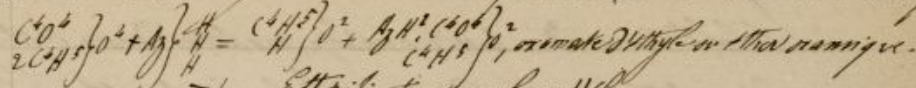 C⁴O⁴ / 2C⁴H⁵ } O⁴ + Az } H / H / H = C⁴H⁵ / H } O² + AzH². C⁴O⁴ / C⁴H⁵ } O², oxamate d'éthyle ou éther oxamique.